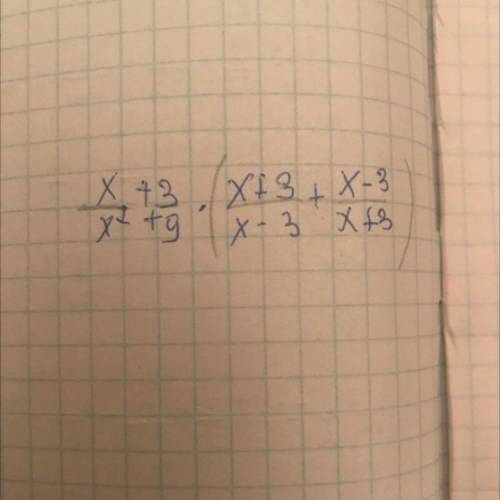 \frac{x+3}{x^2+9} \cdot \left( \frac{x+3}{x-3} + \frac{x-3}{x+3} \right)